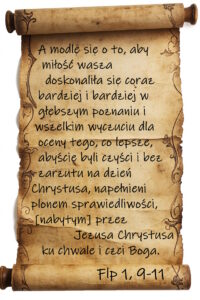 A modlę się o to, aby
miłość wasza
doskonaliła się coraz
bardziej i bardziej w
głębszym poznaniu i
wszelkim wyczuciu dla
oceny tego, co lepsze,
abyście byli czyści i bez
zarzutu na dzień
Chrystusa, napełnieni
plonem sprawiedliwości,
[nabytym] przez
Jezusa Chrystusa
ku chwale i czci Boga.
Flp 1, 9-11